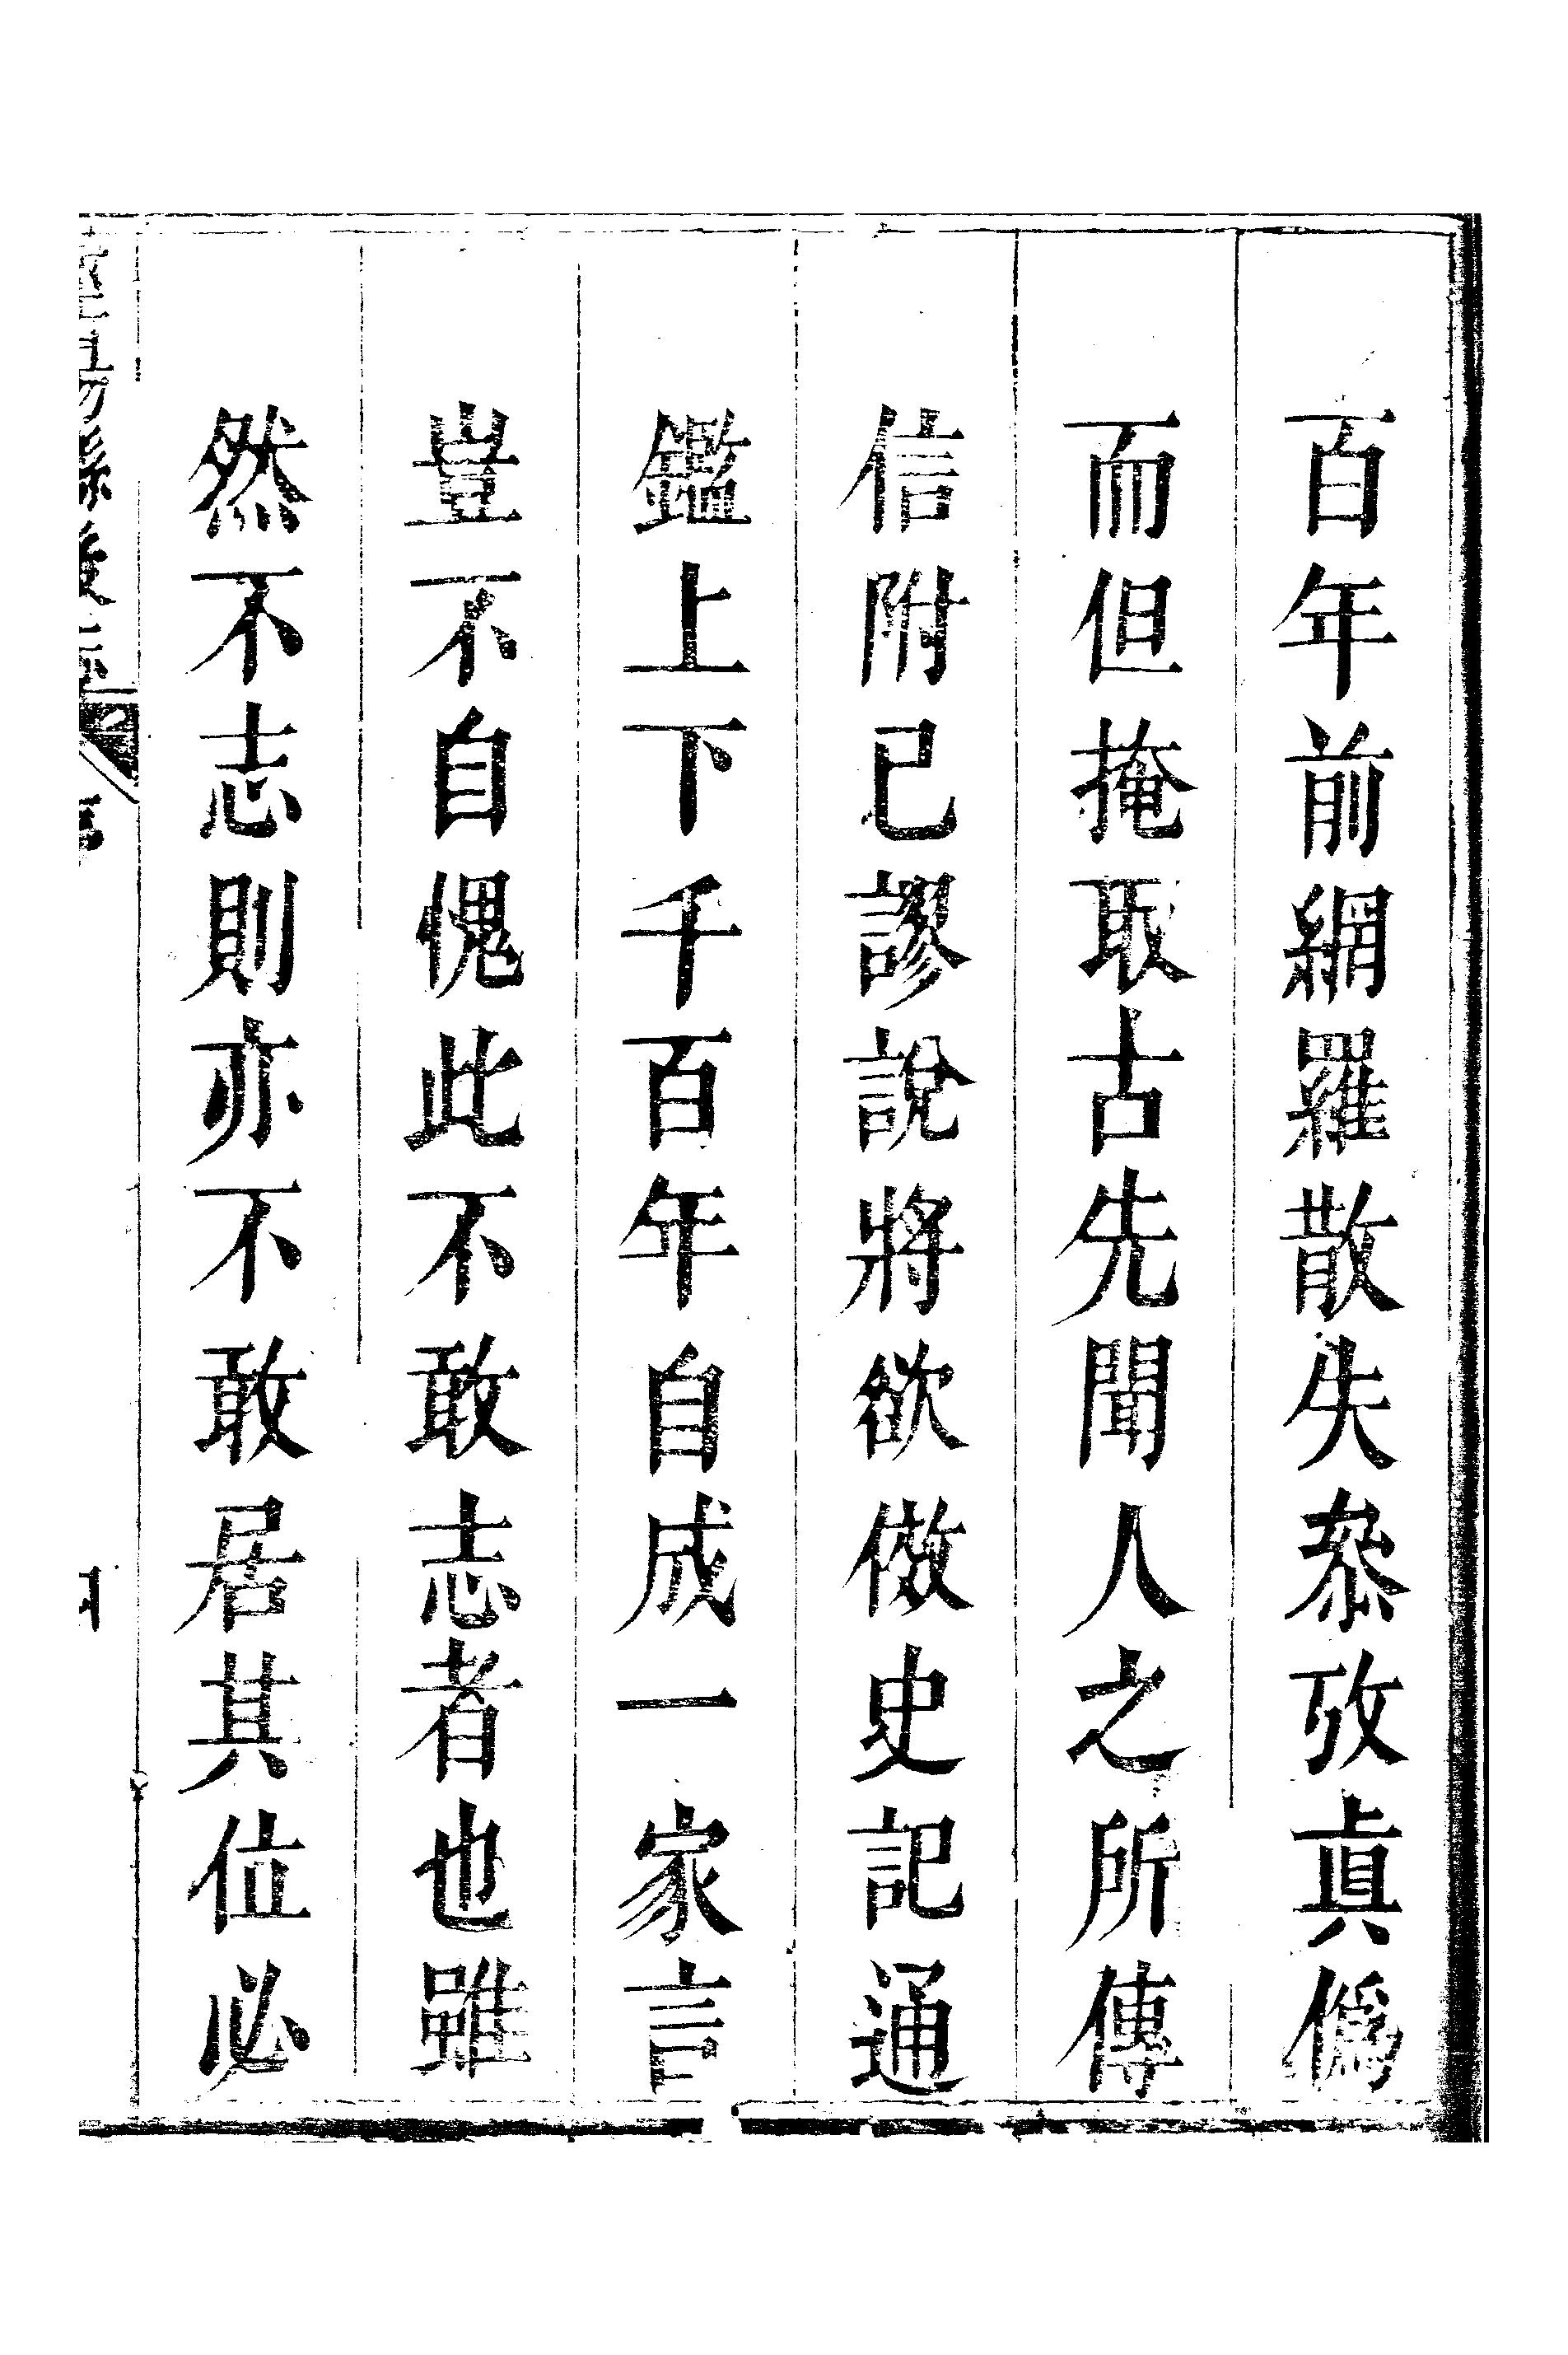 百年前網羅散失叅攷眞僞
而但掩取古先聞人之所傳
信附已謬說將欲倣史記通
鑑上下千百年自成一家言
豈不自愧此不敢志者也雖
然不志則亦不敢居其位必